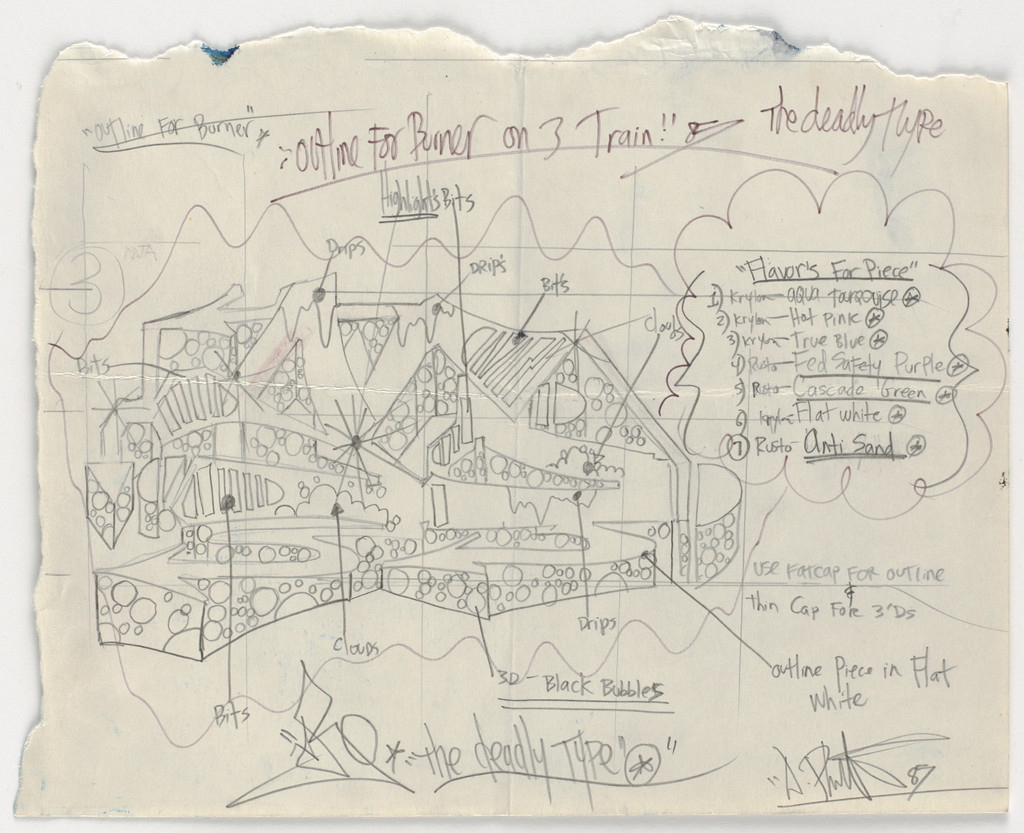 "outline For Burner"
outline For Burner on 3 Train!!
The deadly Type
Highlight's Bits
Drips
DRIP'S
Bit's
Clouds
Bits
3
MTA
"Flavor's For Piece"
1) Krylon - aqua Turqoise
2) Krylon - Hot Pink
3) Krylon - True Blue
4) Rusto - Fed Safety Purple
5) Rusto - Cascade Green
6) Krylon - Flat white
7) Rusto - Anti Sand
USE FATCAP FOR OUTLINE
&
Thin Cap FoR 3'Ds
Clouds
Drips
Bits
3D - Black Bubbles
outline Piece in Flat
White
"the deadly Type"
87